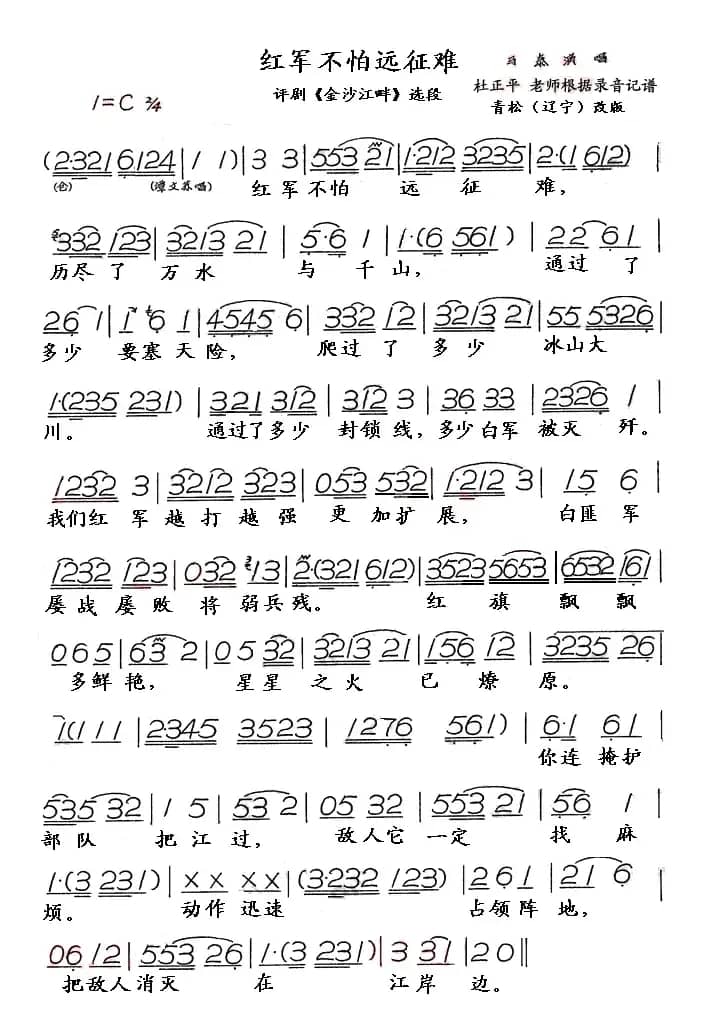 红军不怕远征难
评剧《金沙江畔》选段
杜正平 老师根据录音记谱
青松（辽宁）改版
1=C 2/4
(2·321 6124 | 1 1 ) | 3 3 | 553 21 | 1·212 3235 | 2·(1 612) |
(仓) (谭文苏唱) 红军不怕 远 征 难，
332 123 | 3213 21 | 5·6 1 | 1·(6 561) | 22 61 |
历尽了 万水 与 千山， 通过了
26 1 | 1 6 1 | 4545 6 | 332 12 | 3213 21 | 55 5326 |
多少 要塞天险， 爬过了 多少 冰山大
1·(235 231) | 321 312 | 312 3 | 36 33 | 2326 1 |
川。 通过了多少 封锁线，多少白军 被灭 歼。
1232 3 | 3212 323 | 053 532 | 1·212 3 | 15 6 |
我们红 军 越打越强 更加扩 展， 白匪军
1232 123 | 032 13 | 2·(321 612) | 3523 5653 | 6532 161 |
屡战屡败将 弱兵残。 红 旗 飘 飘
065 | 63 2 | 05 32 | 3213 21 | 156 12 | 3235 26
多鲜艳， 星星 之火 已燎 原。
1(11 | 2·345 3523 | 1276 561) | 6·1 61 |
你连 掩护
535 32 | 1 5 | 352 32 | 05 32 | 553 21 | 56 1 |
部队 把江 过， 敌人它 一定 找 麻
1·(3 231) | X X X X | (3·232 123) | 261 | 21 6 |
烦。 动作 迅速 占领阵 地，
06 12 | 553 235 | 1·(3 231) | 3 31 | 20 ‖
把敌人消灭 在 江岸 边。